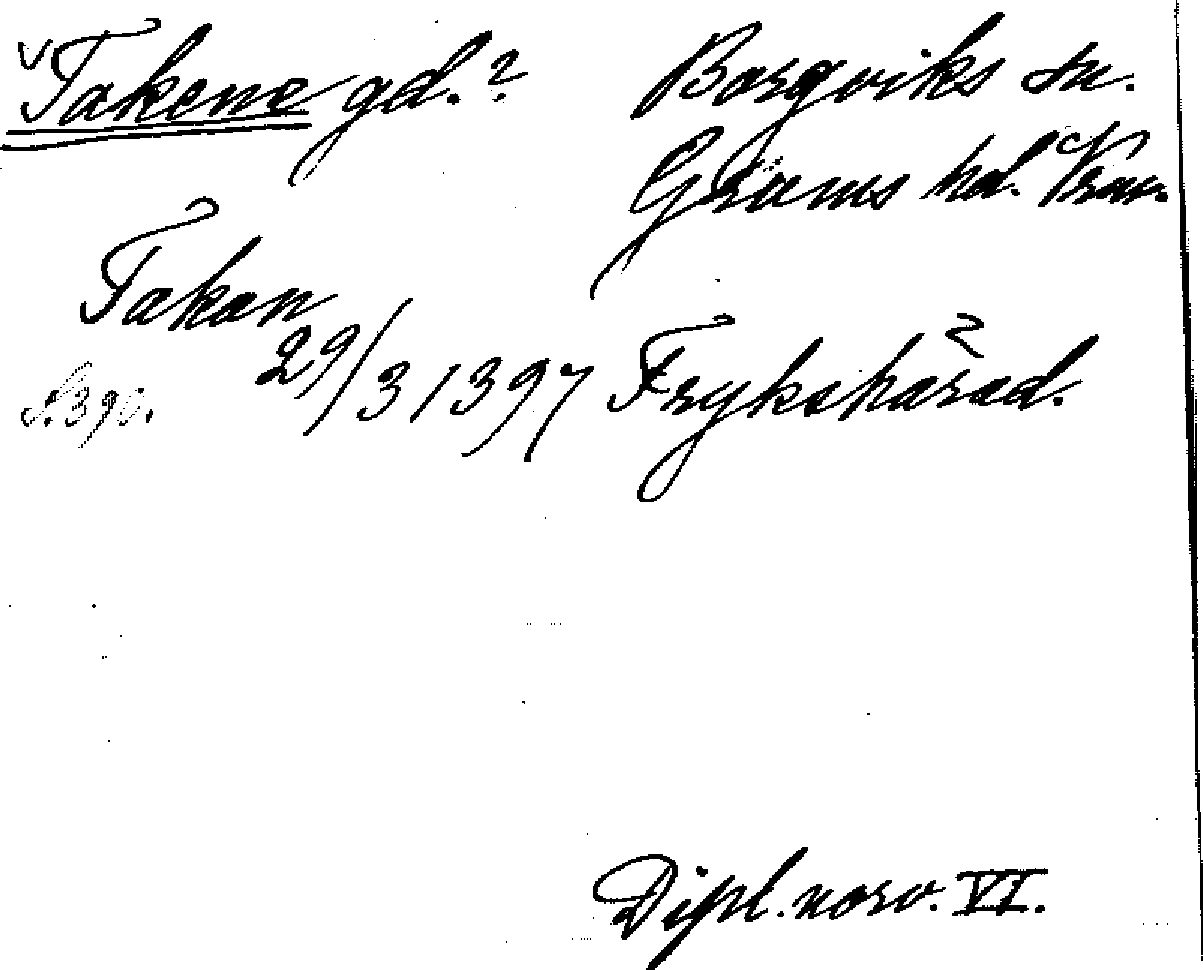 v Takene gd.? Borgviks sn.
Grums hd. Vrm.
Takan
29/3 1397 Frykshärad.
S. 390.
Dipl. norv. VI.